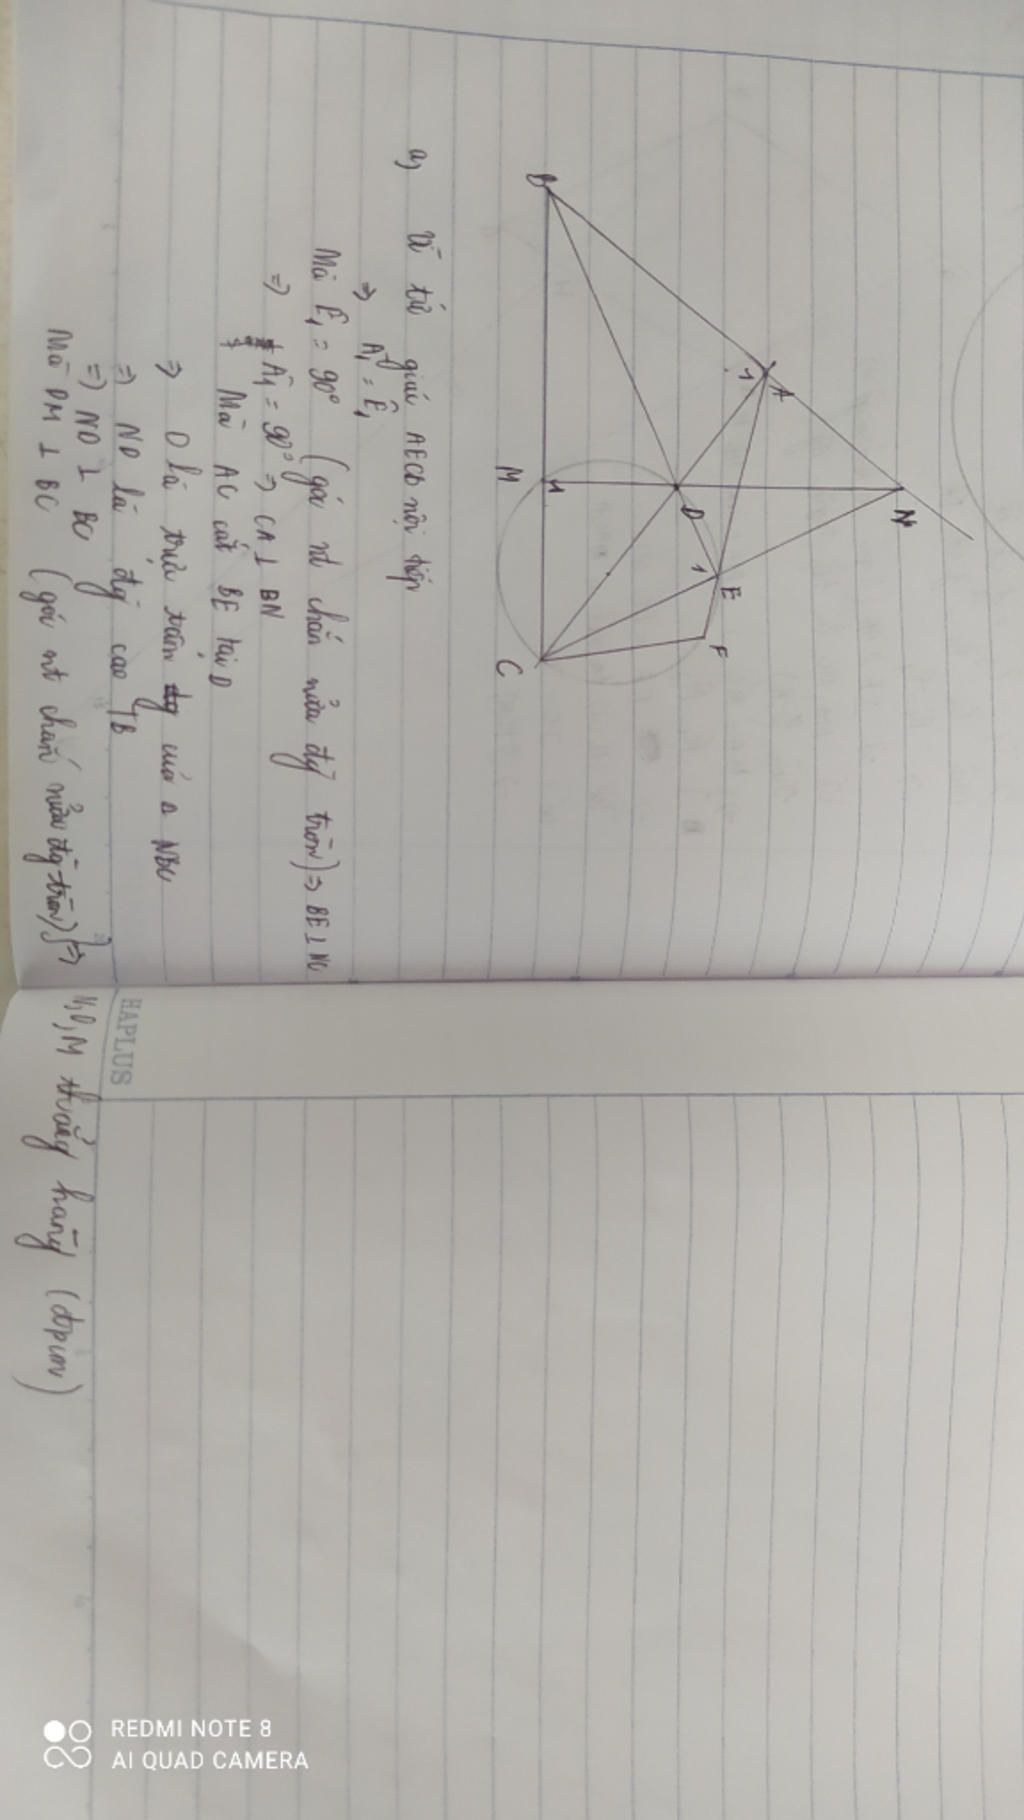 B
A
1
N
M
1
D
1
E
F
C
a) Vì tứ giác AECB nội tiếp
=> Â1 = Ê1
Mà Ê1 = 90° (góc nt chắn nửa đg tròn) => BE ⊥ NC
=> Â1 = 90° => CA ⊥ BN
Mà AC cắt BE tại D
=> D là trực tâm của Δ NBC
=> ND là đg cao
=> ND ⊥ BC
Mà DM ⊥ BC (góc nt chắn nửa đg tròn) } => N, D, M thẳng hàng (đpcm)
HAPLUS
REDMI NOTE 8
AI QUAD CAMERA